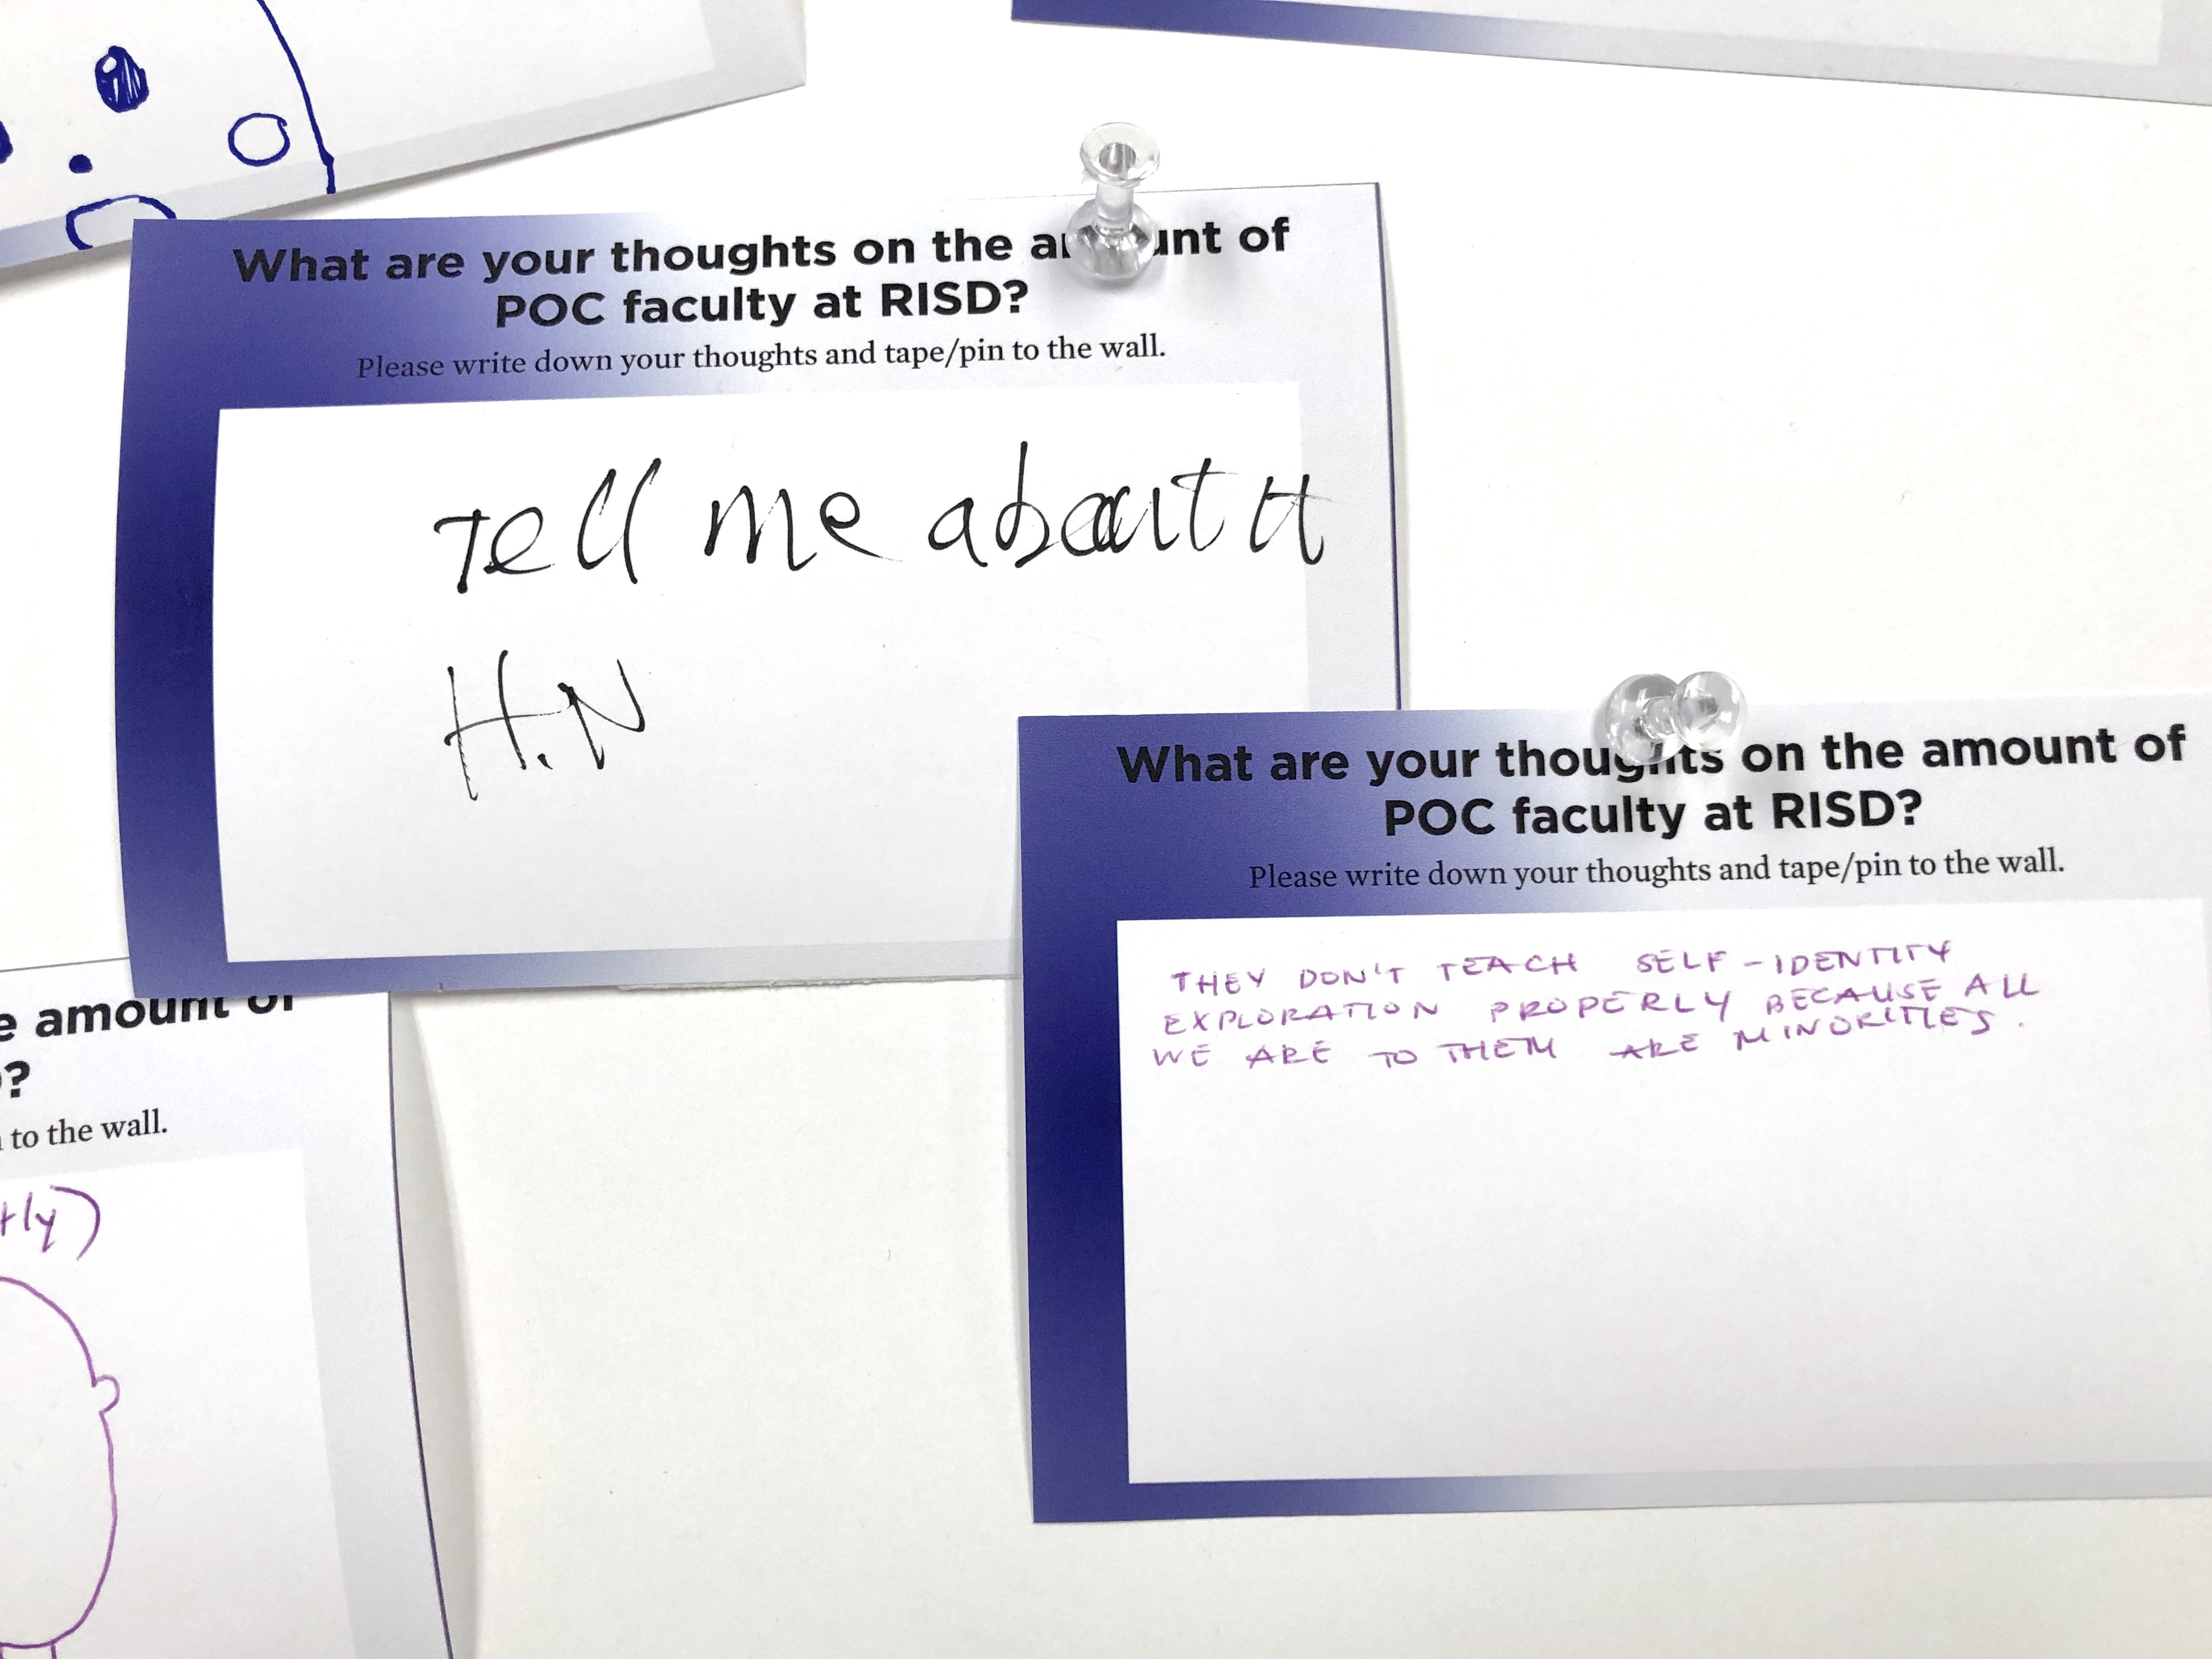 What are your thoughts on the amount of
POC faculty at RISD?
Please write down your thoughts and tape/pin to the wall.
Tell me about it
H.N
What are your thoughts on the amount of
POC faculty at RISD?
Please write down your thoughts and tape/pin to the wall.
THEY DON'T TEACH SELF-IDENTITY
EXPLORATION PROPERLY BECAUSE ALL
WE ARE TO THEM ARE MINORITIES.
e amount of
?
to the wall.
tly)